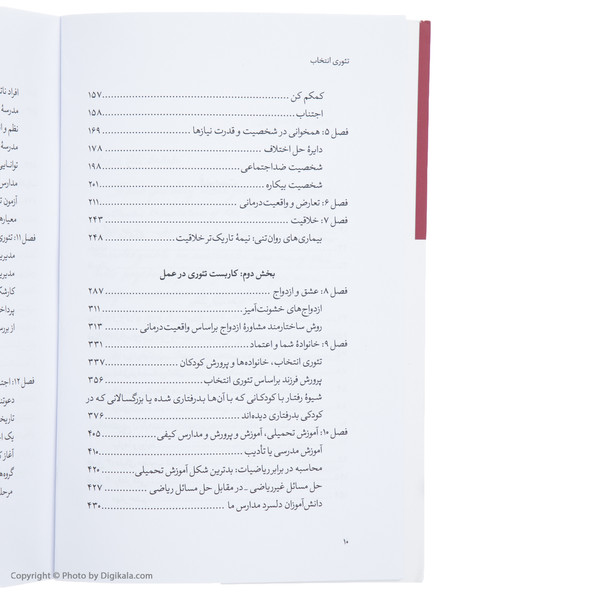 تئوری انتخاب
کمکم کن ........ ۱۵۷
اجتناب ........ ۱۵۸
فصل ۵: همخوانی در شخصیت و قدرت نیازها ........ ۱۶۹
دایرهٔ حل اختلاف ........ ۱۷۸
شخصیت ضداجتماعی ........ ۱۹۸
شخصیت بیکاره ........ ۲۰۱
فصل ۶: تعارض و واقعیت‌درمانی ........ ۲۱۱
فصل ۷: خلاقیت ........ ۲۴۳
بیماری‌های روان‌تنی: نیمهٔ تاریک‌تر خلاقیت ........ ۲۴۸
بخش دوم: کاربست تئوری در عمل
فصل ۸: عشق و ازدواج ........ ۲۸۷
ازدواج‌های خشونت‌آمیز ........ ۳۱۱
روش ساختارمند مشاورهٔ ازدواج براساس واقعیت‌درمانی ........ ۳۱۳
فصل ۹: خانوادهٔ شما و اعتماد ........ ۳۳۱
تئوری انتخاب، خانواده‌ها و پرورش کودکان ........ ۳۳۷
پرورش فرزند براساس تئوری انتخاب ........ ۳۵۶
شیوهٔ رفتار با کودکانی که با آن‌ها بدرفتاری شده یا بزرگسالانی که در
کودکی بدرفتاری دیده‌اند ........ ۳۷۶
فصل ۱۰: آموزش تحمیلی، آموزش و پرورش و مدارس کیفی ........ ۴۰۵
آموزش مدرسی یا تأدیب ........ ۴۱۰
محاسبه در برابر ریاضیات: بدترین شکل آموزش تحمیلی ........ ۴۲۰
حل مسائل غیرریاضی ـ در مقابل حل مسائل ریاضی ........ ۴۲۷
دانش‌آموزان دلسرد مدارس ما ........ ۴۳۰
۱۰
افراد
مدرسهٔ
نظم و
مدرسهٔ
توانایی
مدارس
آزمون
فصل ۱۱: تئوری
فصل ۱۲:
یک
آغاز
Copyright © Photo by Digikala.com